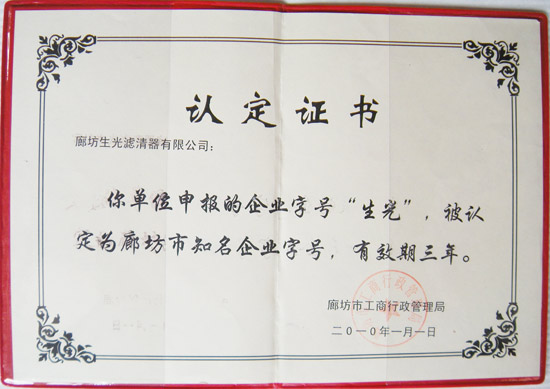 认定证书
廊坊生光滤清器有限公司：
你单位申报的企业字号“生光”，被认
定为廊坊市知名企业字号，有效期三年。
廊坊市工商行政管理局
二〇一〇年一月一日